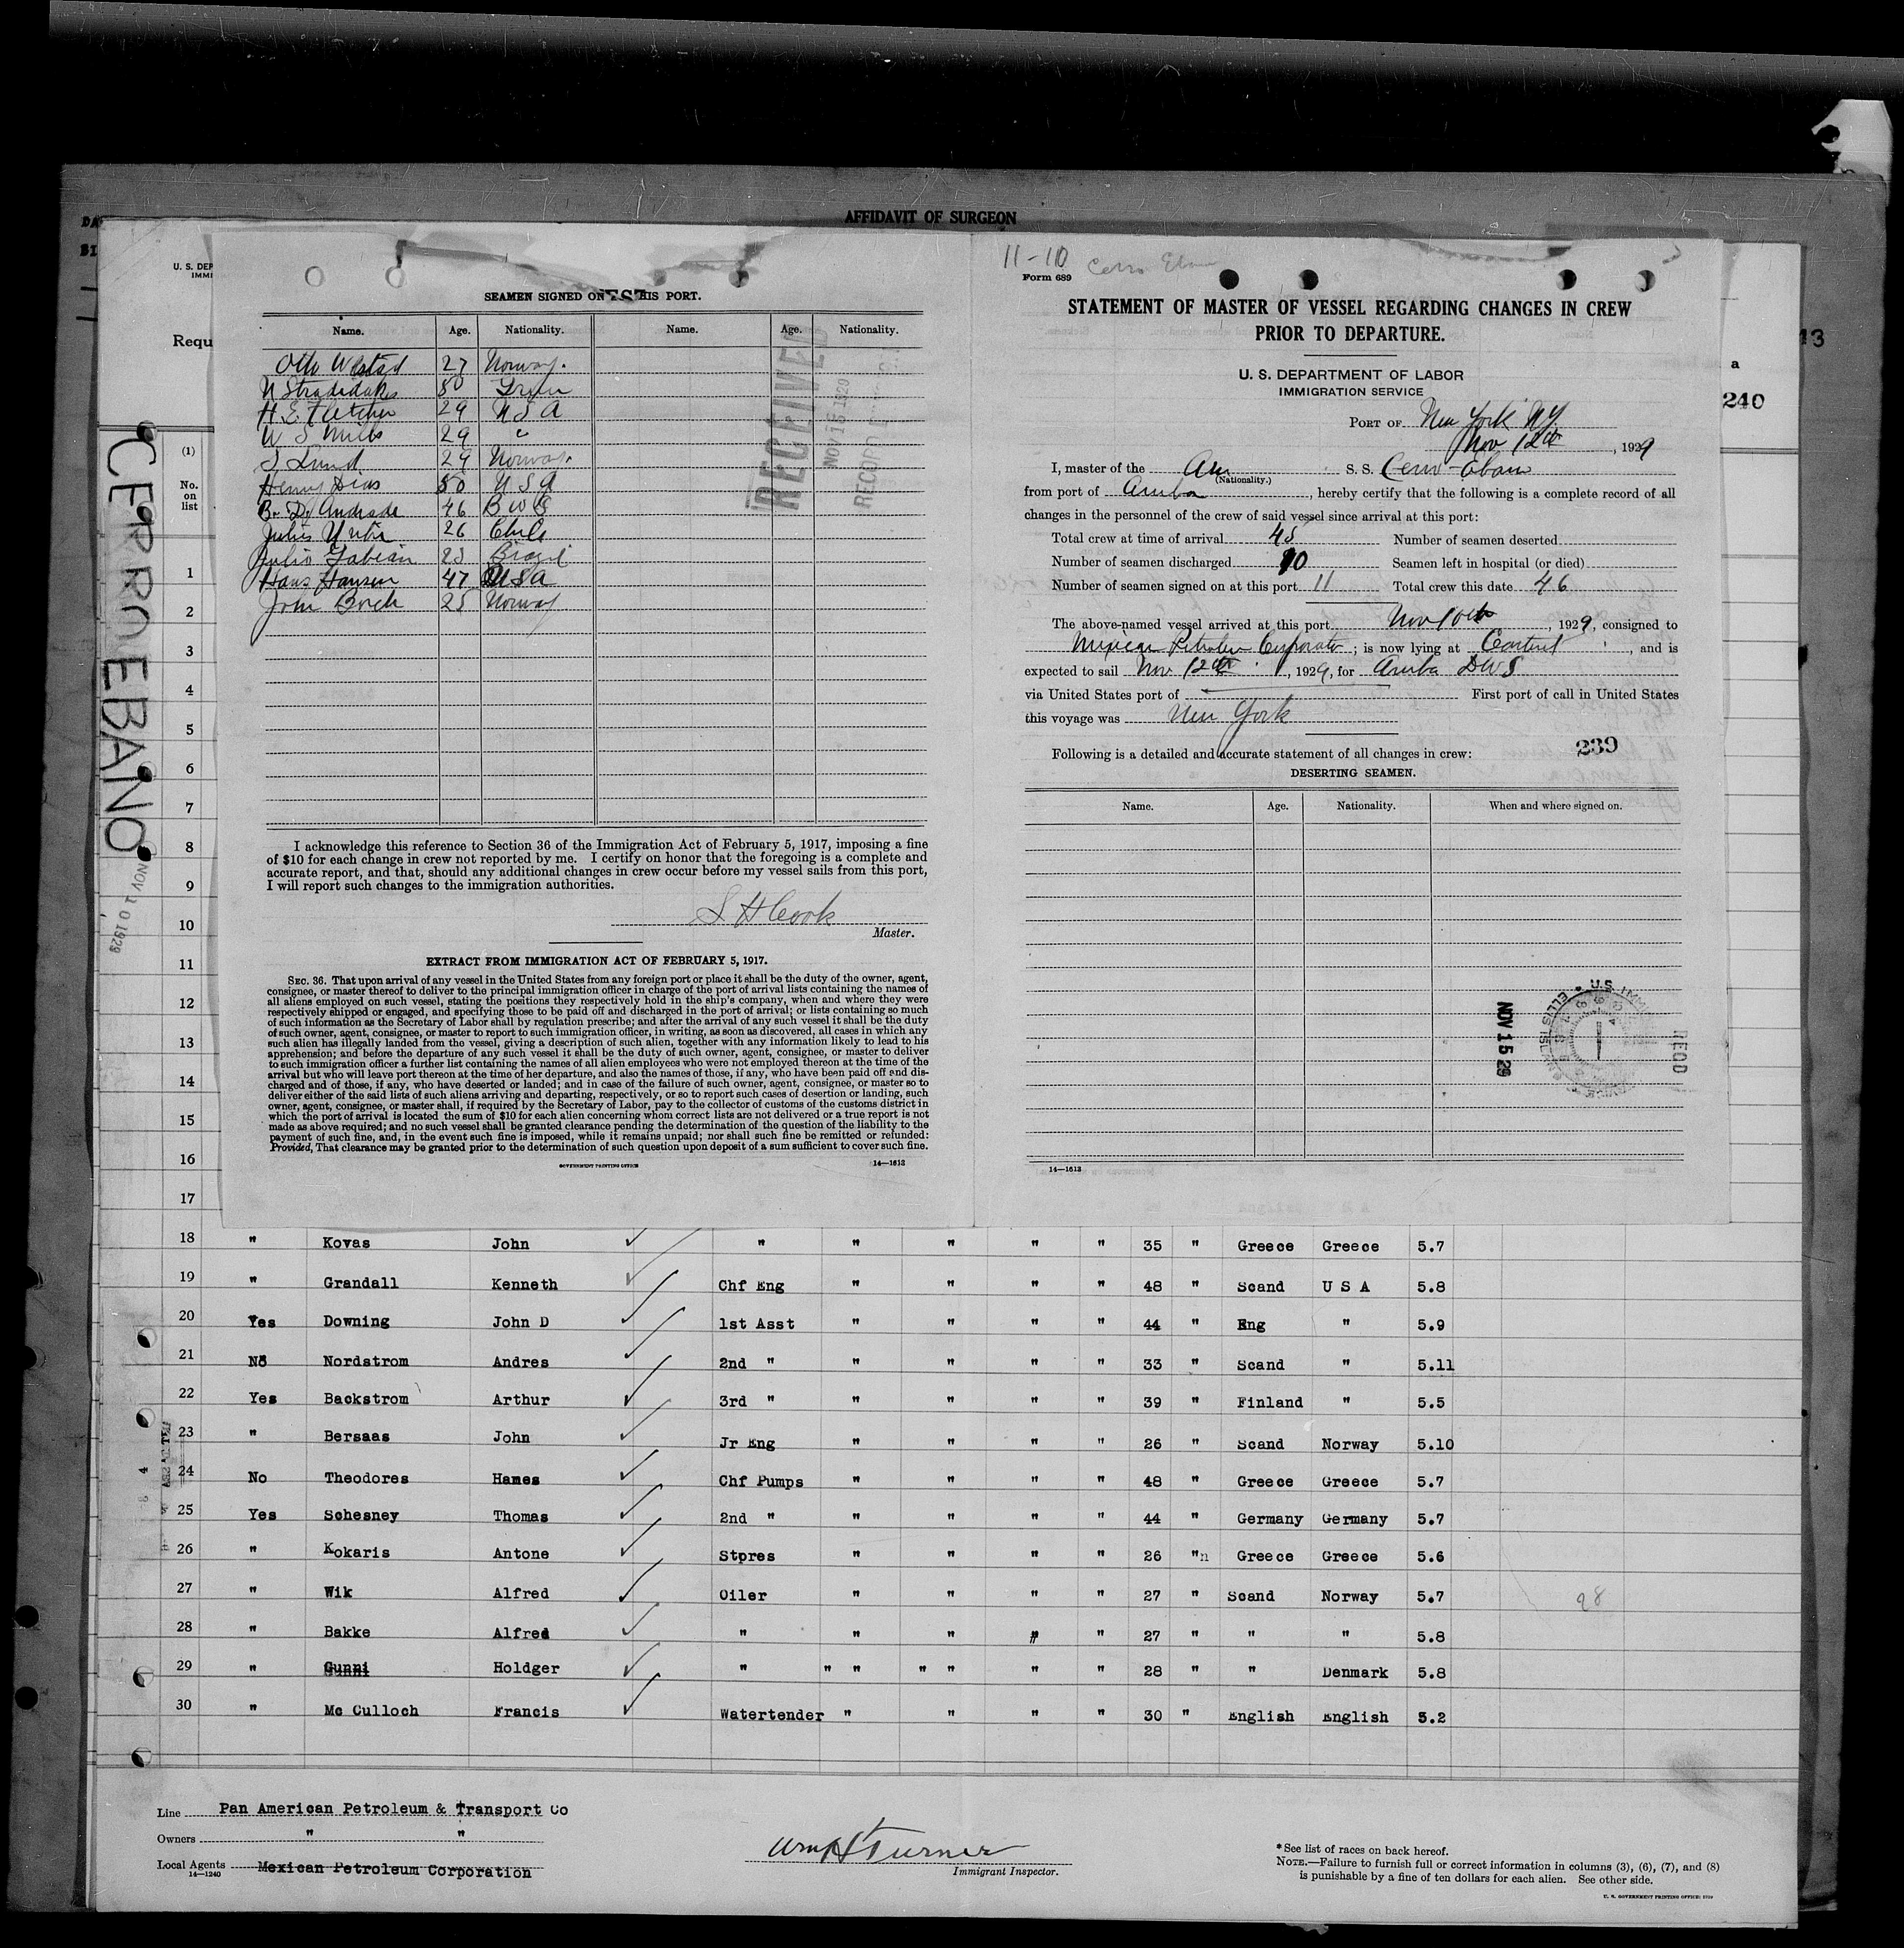 AFFIDAVIT OF SURGEON
U. S. DEP
IMMI
Requ
(1)
No.
on
list
CERRO EBANO
NOV 10 1929
a
240
13
SEAMEN SIGNED ON THIS PORT.
Name. Age. Nationality. Name. Age. Nationality.
Otto Westad 27 Norway.
50
H E Fletcher 29 U S A
W S Mills 29 "
S Lund 29 Norway.
Henry Dias 50 U S A
B. D. Andrade 46 B W I
Julius 26 Chile
Julio Fabian 23 Brazil
Hans Hansen 47 U S A
John Borch 25 Norway
RECEIVED
NOV 16 1929
RECORD
I acknowledge this reference to Section 36 of the Immigration Act of February 5, 1917, imposing a fine
of $10 for each change in crew not reported by me. I certify on honor that the foregoing is a complete and
accurate report, and that, should any additional changes in crew occur before my vessel sails from this port,
I will report such changes to the immigration authorities.
S H Cook
Master.
EXTRACT FROM IMMIGRATION ACT OF FEBRUARY 5, 1917.
SEC. 36. That upon arrival of any vessel in the United States from any foreign port or place it shall be the duty of the owner, agent,
consignee, or master thereof to deliver to the principal immigration officer in charge of the port of arrival lists containing the names of
all aliens employed on such vessel, stating the positions they respectively hold in the ship's company, when and where they were
respectively shipped or engaged, and specifying those to be paid off and discharged in the port of arrival; or lists containing so much
of such information as the Secretary of Labor shall by regulation prescribe; and after the arrival of any such vessel it shall be the duty
of such owner, agent, consignee, or master to report to such immigration officer, in writing, as soon as discovered, all cases in which any
such alien has illegally landed from the vessel, giving a description of such alien, together with any information likely to lead to his
apprehension; and before the departure of any such vessel it shall be the duty of such owner, agent, consignee, or master to deliver
to such immigration officer a further list containing the names of all alien employees who were not employed thereon at the time of the
arrival but who will leave port thereon at the time of her departure, and also the names of those, if any, who have been paid off and dis-
charged and of those, if any, who have deserted or landed; and in case of the failure of such owner, agent, consignee, or master so to
deliver either of the said lists of such aliens arriving and departing, respectively, or so to report such cases of desertion or landing, such
owner, agent, consignee, or master shall, if required by the Secretary of Labor, pay to the collector of customs of the customs district in
which the port of arrival is located the sum of $10 for each alien concerning whom correct lists are not delivered or a true report is not
made as above required; and no such vessel shall be granted clearance pending the determination of the question of the liability to the
payment of such fine, and, in the event such fine is imposed, while it remains unpaid; nor shall such fine be remitted or refunded:
Provided, That clearance may be granted prior to the determination of such question upon deposit of a sum sufficient to cover such fine.
GOVERNMENT PRINTING OFFICE 14—1613
11-10 Cerro Ebano
Form 689
STATEMENT OF MASTER OF VESSEL REGARDING CHANGES IN CREW
PRIOR TO DEPARTURE.
U. S. DEPARTMENT OF LABOR
IMMIGRATION SERVICE
PORT OF New York NY.
Nov 12th, 1929
I, master of the Am S. S. Cerro-Ebano
(Nationality.)
from port of Aruba, hereby certify that the following is a complete record of all
changes in the personnel of the crew of said vessel since arrival at this port:
Total crew at time of arrival 45 Number of seamen deserted
Number of seamen discharged 10 Seamen left in hospital (or died)
Number of seamen signed on at this port 11 Total crew this date 46
The above-named vessel arrived at this port Nov 10th, 1929, consigned to
Mexican Petroleum Corporation; is now lying at Carteret, and is
expected to sail Nov. 12th, 1929, for Aruba DWI
via United States port of First port of call in United States
this voyage was New York
Following is a detailed and accurate statement of all changes in crew:
239
DESERTING SEAMEN.
Name. Age. Nationality. When and where signed on.
NOV 15 29
U.S. IMMI
ELLIS ISL
RECD
14—1613
1
2
3
4
5
6
7
8
9
10
11
12
13
14
15
16
17
18 " Kovas John " " " " " 35 " Greece Greece 5.7
19 " Grandall Kenneth Chf Eng " " " " 48 " Scand U S A 5.8
20 Yes Downing John D 1st Asst " " " " 44 " Eng " 5.9
21 No Nordstrom Andres 2nd " " " " " 33 " Scand " 5.11
22 Yes Backstrom Arthur 3rd " " " " " 39 " Finland " 5.5
23 " Bersaas John Jr Eng " " " " 26 " Scand Norway 5.10
24 No Theodores Hames Chf Pumps " " " " 48 " Greece Greece 5.7
25 Yes Schesney Thomas 2nd " " " " " 44 " Germany Germany 5.7
26 " Kokaris Antone Stpres " " " " 26 "n Greece Greece 5.6
27 " Wik Alfred Oiler " " " " 27 " Scand Norway 5.7
28 " Bakke Alfred " " " " " 27 " " " 5.8
29 " Gunni Holdger " " " " " " " 28 " " Denmark 5.8
30 " Mc Culloch Francis Watertender " " " " 30 " English English 5.2
98
Line Pan American Petroleum & Transport Co
Owners " "
Local Agents Mexican Petroleum Corporation
14—1240
Wm H Turner
Immigrant Inspector.
*See list of races on back hereof.
NOTE.—Failure to furnish full or correct information in columns (3), (6), (7), and (8)
is punishable by a fine of ten dollars for each alien. See other side.
U. S. GOVERNMENT PRINTING OFFICE: 1929